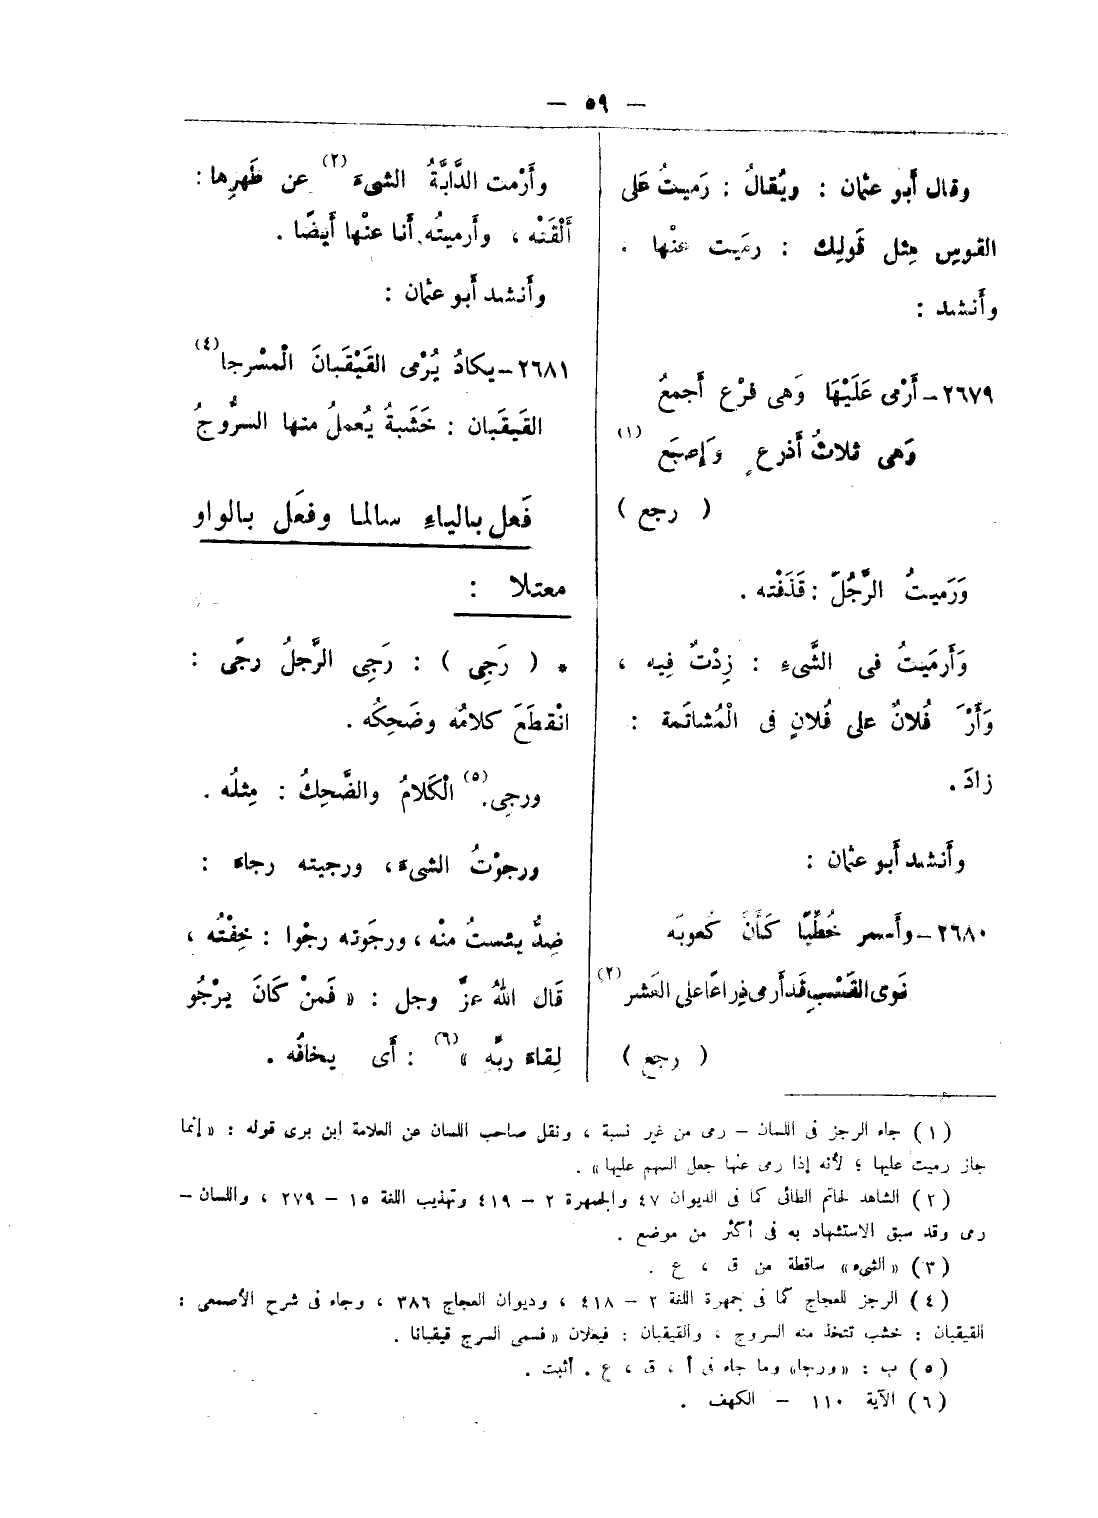 — ٥٩ —
وقال أَبو عثمان : ويُقالُ : رَميتُ عَلى
القوسِ مِثل قَولِك : رميت عنْها .
وأَنشد :
٢٦٧٩ – أَرْمى عَلَيْهَا وَهى فرْع أَجمعُ
وَهى ثلاثُ أَذرعٍ وَإِصبَع (١)
( رجع )
وَرَميتُ الرَّجُلَ : قَذَفْته .
وَأَرميتُ فى الشَّىءِ : زِدْتُ فِيه ،
وَأَرْ فُلانٌ على فُلانٍ فى الْمُشاتَمة :
زادَ .
وأَنشد أَبو عثمان :
٢٦٨٠ – وأَسمر خُطِّيًّا كَأَنَّ كُعوبَه
نَوى القَسْبِ قَد أَرمى ذِراعًا على العَشر (٢)
( رجع )
وأَرْمت الدَّابَّةُ الشىءَ (٢) عن ظَهرِها :
أَلْقَتْه ، وأَرميتُه أَنا عنْها أَيضًا .
وأَنشد أَبو عثمان :
٢٦٨١ – يكادُ يُرْمى القَيْقَبانَ الْمسْرجا (٤)
القَيقَبان : خَشَبةُ يُعملُ منها السرُّوجُ
فَعل بالياءِ سالما وفعَل بالواو
معتلا :
* ( رَجِى ) : رَجِى الرَّجلُ رجًى :
انْقطَعَ كلامُه وضَحِكُه .
ورجِى (٥) الْكَلامُ والضَّحِكُ : مِثلُه .
ورجوْتُ الشىءَ ، ورجيته رجاءً :
ضِدُّ يئستُ منْه ، ورجَوته رجْوا : خِفْتُه ،
قَال اللهُ عزَّ وجل : « فَمنْ كَانَ يرْجُو
لِقاءَ ربِّه » (٦) : أَى يخافُه .
(١) جاء الرجز فى اللسان – رمى من غير نسبة ، ونقل صاحب اللسان عن العلامة ابن برى قوله : « إنما
جاز رميت عليها ؛ لأنه إذا رمى عنها جعل السهم عليها » .
(٢) الشاهد لحاتم الطائى كما فى الديوان ٤٧ والجمهرة ٢ – ٤١٩ وتهذيب اللغة ١٥ – ٢٧٩ ، واللسان –
رمى وقد سبق الاستشهاد به فى أكثر من موضع .
(٣) « الشىء » ساقطة من ق ، ع .
(٤) الرجز للعجاج كما فى جمهرة اللغة ٢ – ٤١٨ ، وديوان العجاج ٣٨٦ ، وجاء فى شرح الأصمعى :
القيقبان : خشب تتخذ منه السروج ، والقيقبان : فيعلان « فسمى السرج قيقبانا .
(٥) ب : « ورجا » وما جاء فى أ ، ق ، ع . أثبت .
(٦) الآية ١١٠ – الكهف .